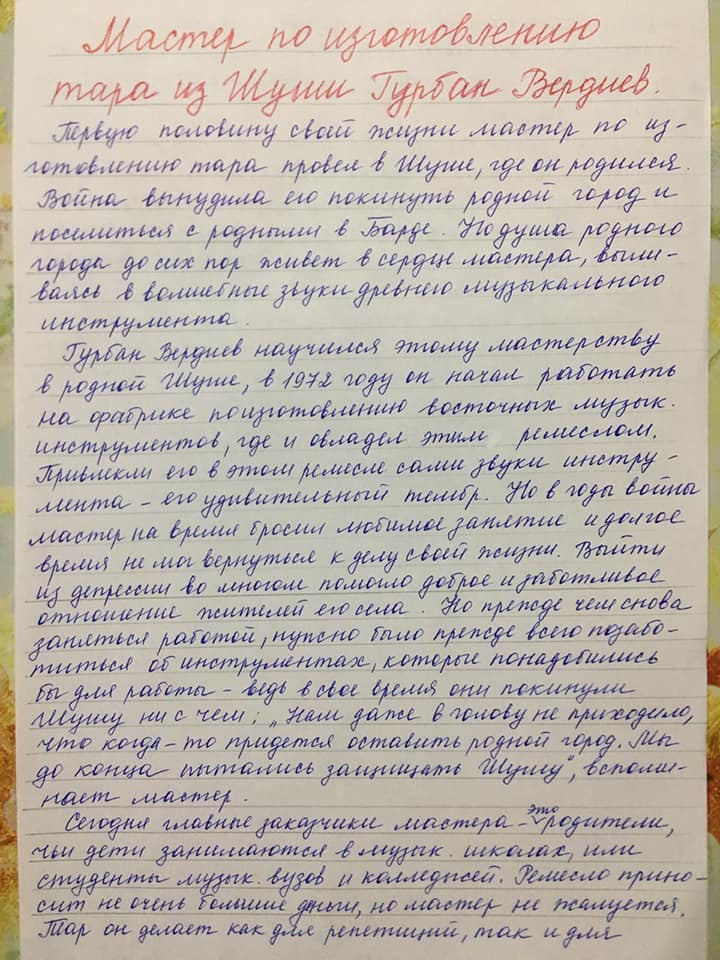 Мастер по изготовлению
тара из Шуши Гурбан Вердиев.
Первую половину своей жизни мастер по из-
готовлению тара провел в Шуше, где он родился.
Война вынудила его покинуть родной город и
поселиться с родными в Барде. Но душа родного
города до сих пор живет в сердце мастера, выли-
ваясь в волшебные звуки древнего музыкального
инструмента.
Гурбан Вердиев научился этому мастерству
в родной Шуше, в 1972 году он начал работать
на фабрике по изготовлению восточных музык.
инструментов, где и овладел этим ремеслом.
Привлекли его в этом ремесле сами звуки инстру-
мента – его удивительный тембр. Но в годы войны
мастер на время бросил любимое занятие и долгое
время не мог вернуться к делу своей жизни. Выйти
из депрессии во многом помогло доброе и заботливое
отношение жителей его села. Но прежде чем снова
заняться работой, нужно было прежде всего позабо-
титься об инструментах, которые понадобились
бы для работы – ведь в свое время они покинули
Шушу ни с чем; „Нам даже в голову не приходило,
что когда-то придется оставить родной город. Мы
до конца пытались защищать Шушу", вспоми-
нает мастер.
Сегодня главные заказчики мастера – это родители,
чьи дети занимаются в музык. школах, или
студенты музык. вузов и колледжей. Ремесло прино-
сит не очень большие деньги, но мастер не жалуется.
Тар он делает как для репетиций, так и для